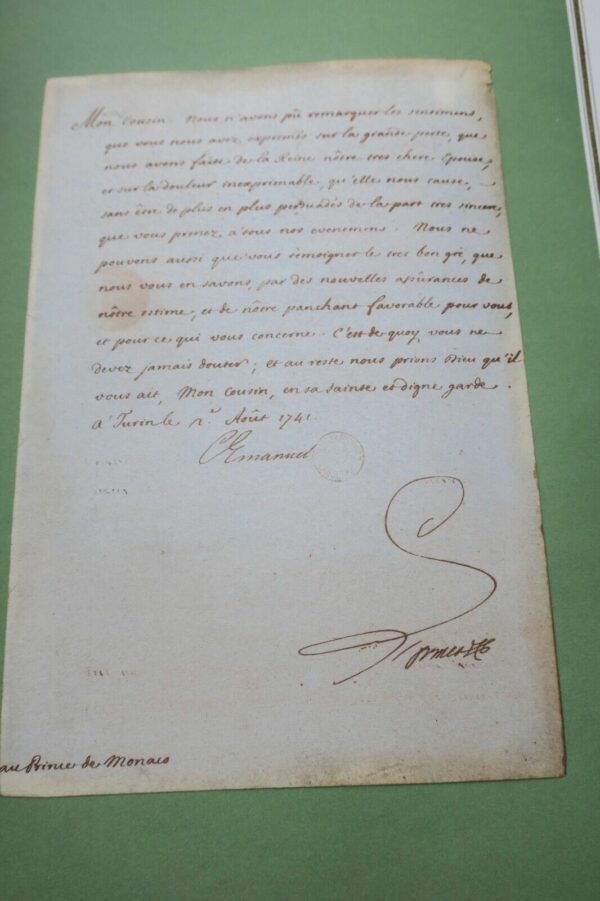 Mon Cousin. Nous n'avons pû remarquer les sentimens,
que vous nous avez exprimés sur la grande perte, que
nous avons faite de la Reine nôtre tres chere Epouse,
et sur la douleur inexprimable, qu'elle nous cause,
sans être de plus en plus persuadés de la part tres sincere,
que vous prenez à tous nos evenemens. Nous ne
pouvons aussi que vous témoigner le tres bon gré, que
nous vous en savons, par des nouvelles assûrances de
nôtre estime, et de nôtre panchant favorable pour vous,
et pour ce qui vous concerne. C'est de quoy vous ne
devez jamais douter; et au reste nous prions Dieu qu'il
vous ait, Mon Cousin, en sa sainte et digne garde.
A Turin le Août 1741.
CEmanuel
au Prince de Monaco